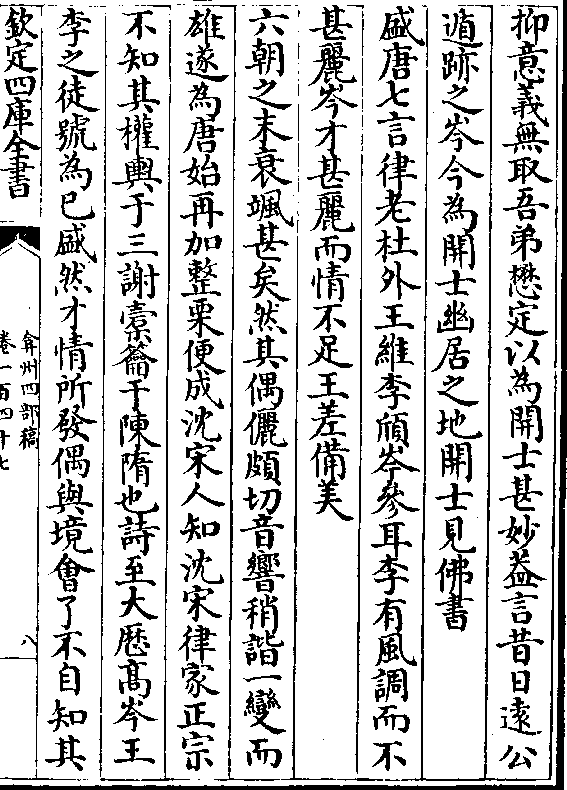 抑意義無取吾弟懋定以為開士甚妙蓋言昔日遠公
遁跡之岑今為開士幽居之地開士見佛書
盛唐七言律老杜外王維李頎岑參耳李有風調而不
甚麗岑才甚麗而情不足王差備美
六朝之末衰颯甚矣然其偶儷頗切音響稍諧一變而
雄遂為唐始再加整栗便成沈宋人知沈宋律家正宗
不知其權輿于三謝橐籥于陳隋也詩至大厯高岑王
李之徒號為已盛然才情所發偶與境會了不自知其
欽定四庫全書
弇州四部稿
卷一百四十七
八